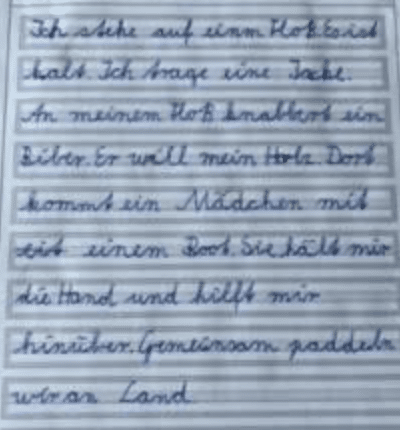 Ich stehe auf einm Floß. Es ist
kalt. Ich trage eine Jacke.
An meinem Floß knabbert ein
Biber. Er will mein Holz. Dort
kommt ein Mädchen mit
einem Boot. Sie hält mir
die Hand und hilft mir
hinüber. Gemeinsam paddeln
wir an Land